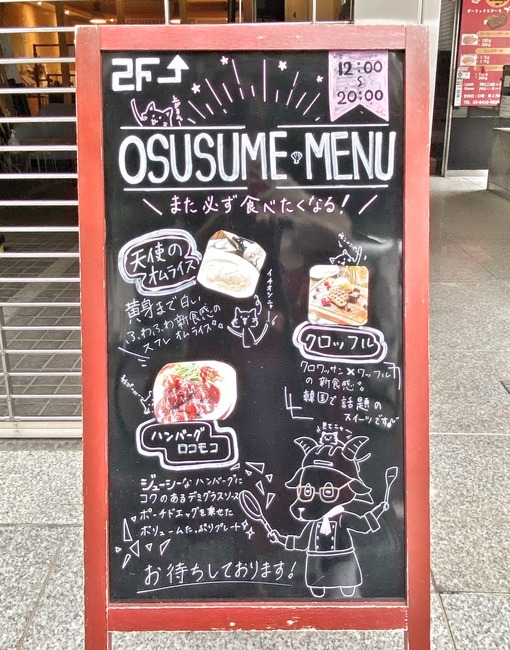 2F
12:00
~
20:00
OSUSUME MENU
また必ず食べたくなる!
天使の
オムライス
黄身まで白い
ふわふわ新食感の
スフレオムライス。
イチオシニャ
クロッフル
クロワッサン×ワッフル
の新食感。
韓国で話題の
スイーツですが
ハンバーグ
ロコモコ
ジューシーなハンバーグに
コクのあるデミグラスソース
ポーチドエッグを乗せた
ボリュームたっぷりプレート
お待ちしております!